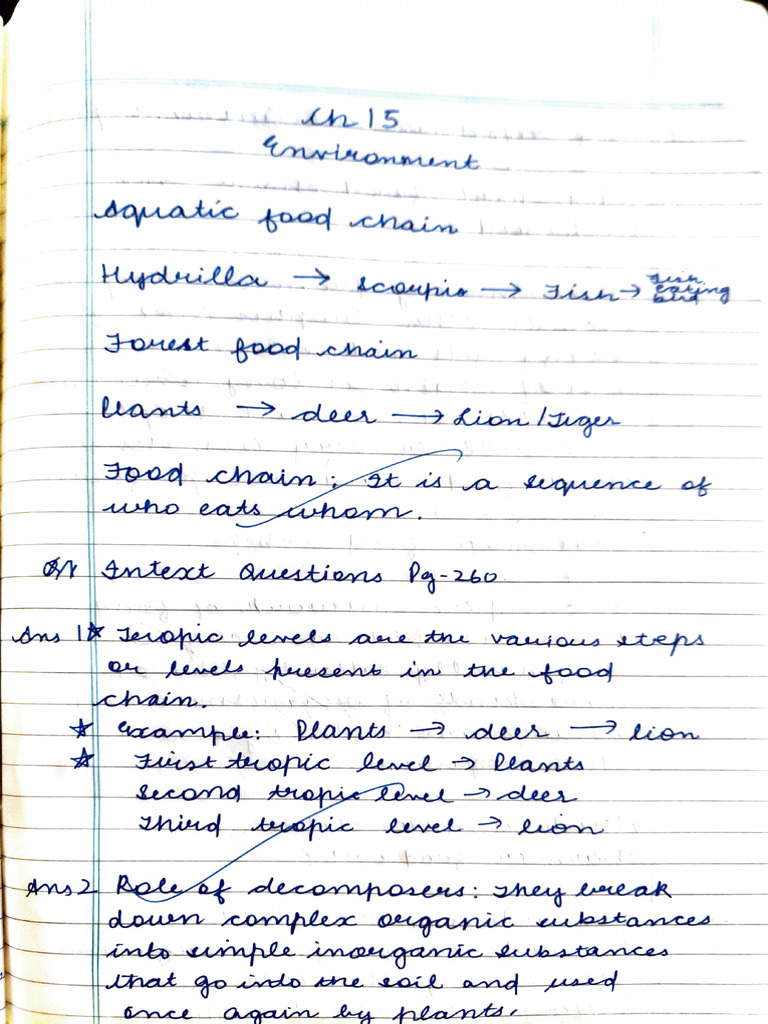 Ch 15
Environment
Aquatic food chain
Hydrilla → scorpio → Fish → Fish eating bird
Forest food chain
Plants → deer → Lion / Tiger
Food chain : It is a sequence of
who eats whom.
Intext Questions Pg-260
Ans 1 * Teropic levels are the various steps
or levels present in the food
chain.
* Example: Plants → deer → lion
* First tropic level → Plants
Second tropic level → deer
Third tropic level → lion
Ans 2 Role of decomposers: They break
down complex organic substances
into simple inorganic substances
that go into the soil and used
once again by plants.